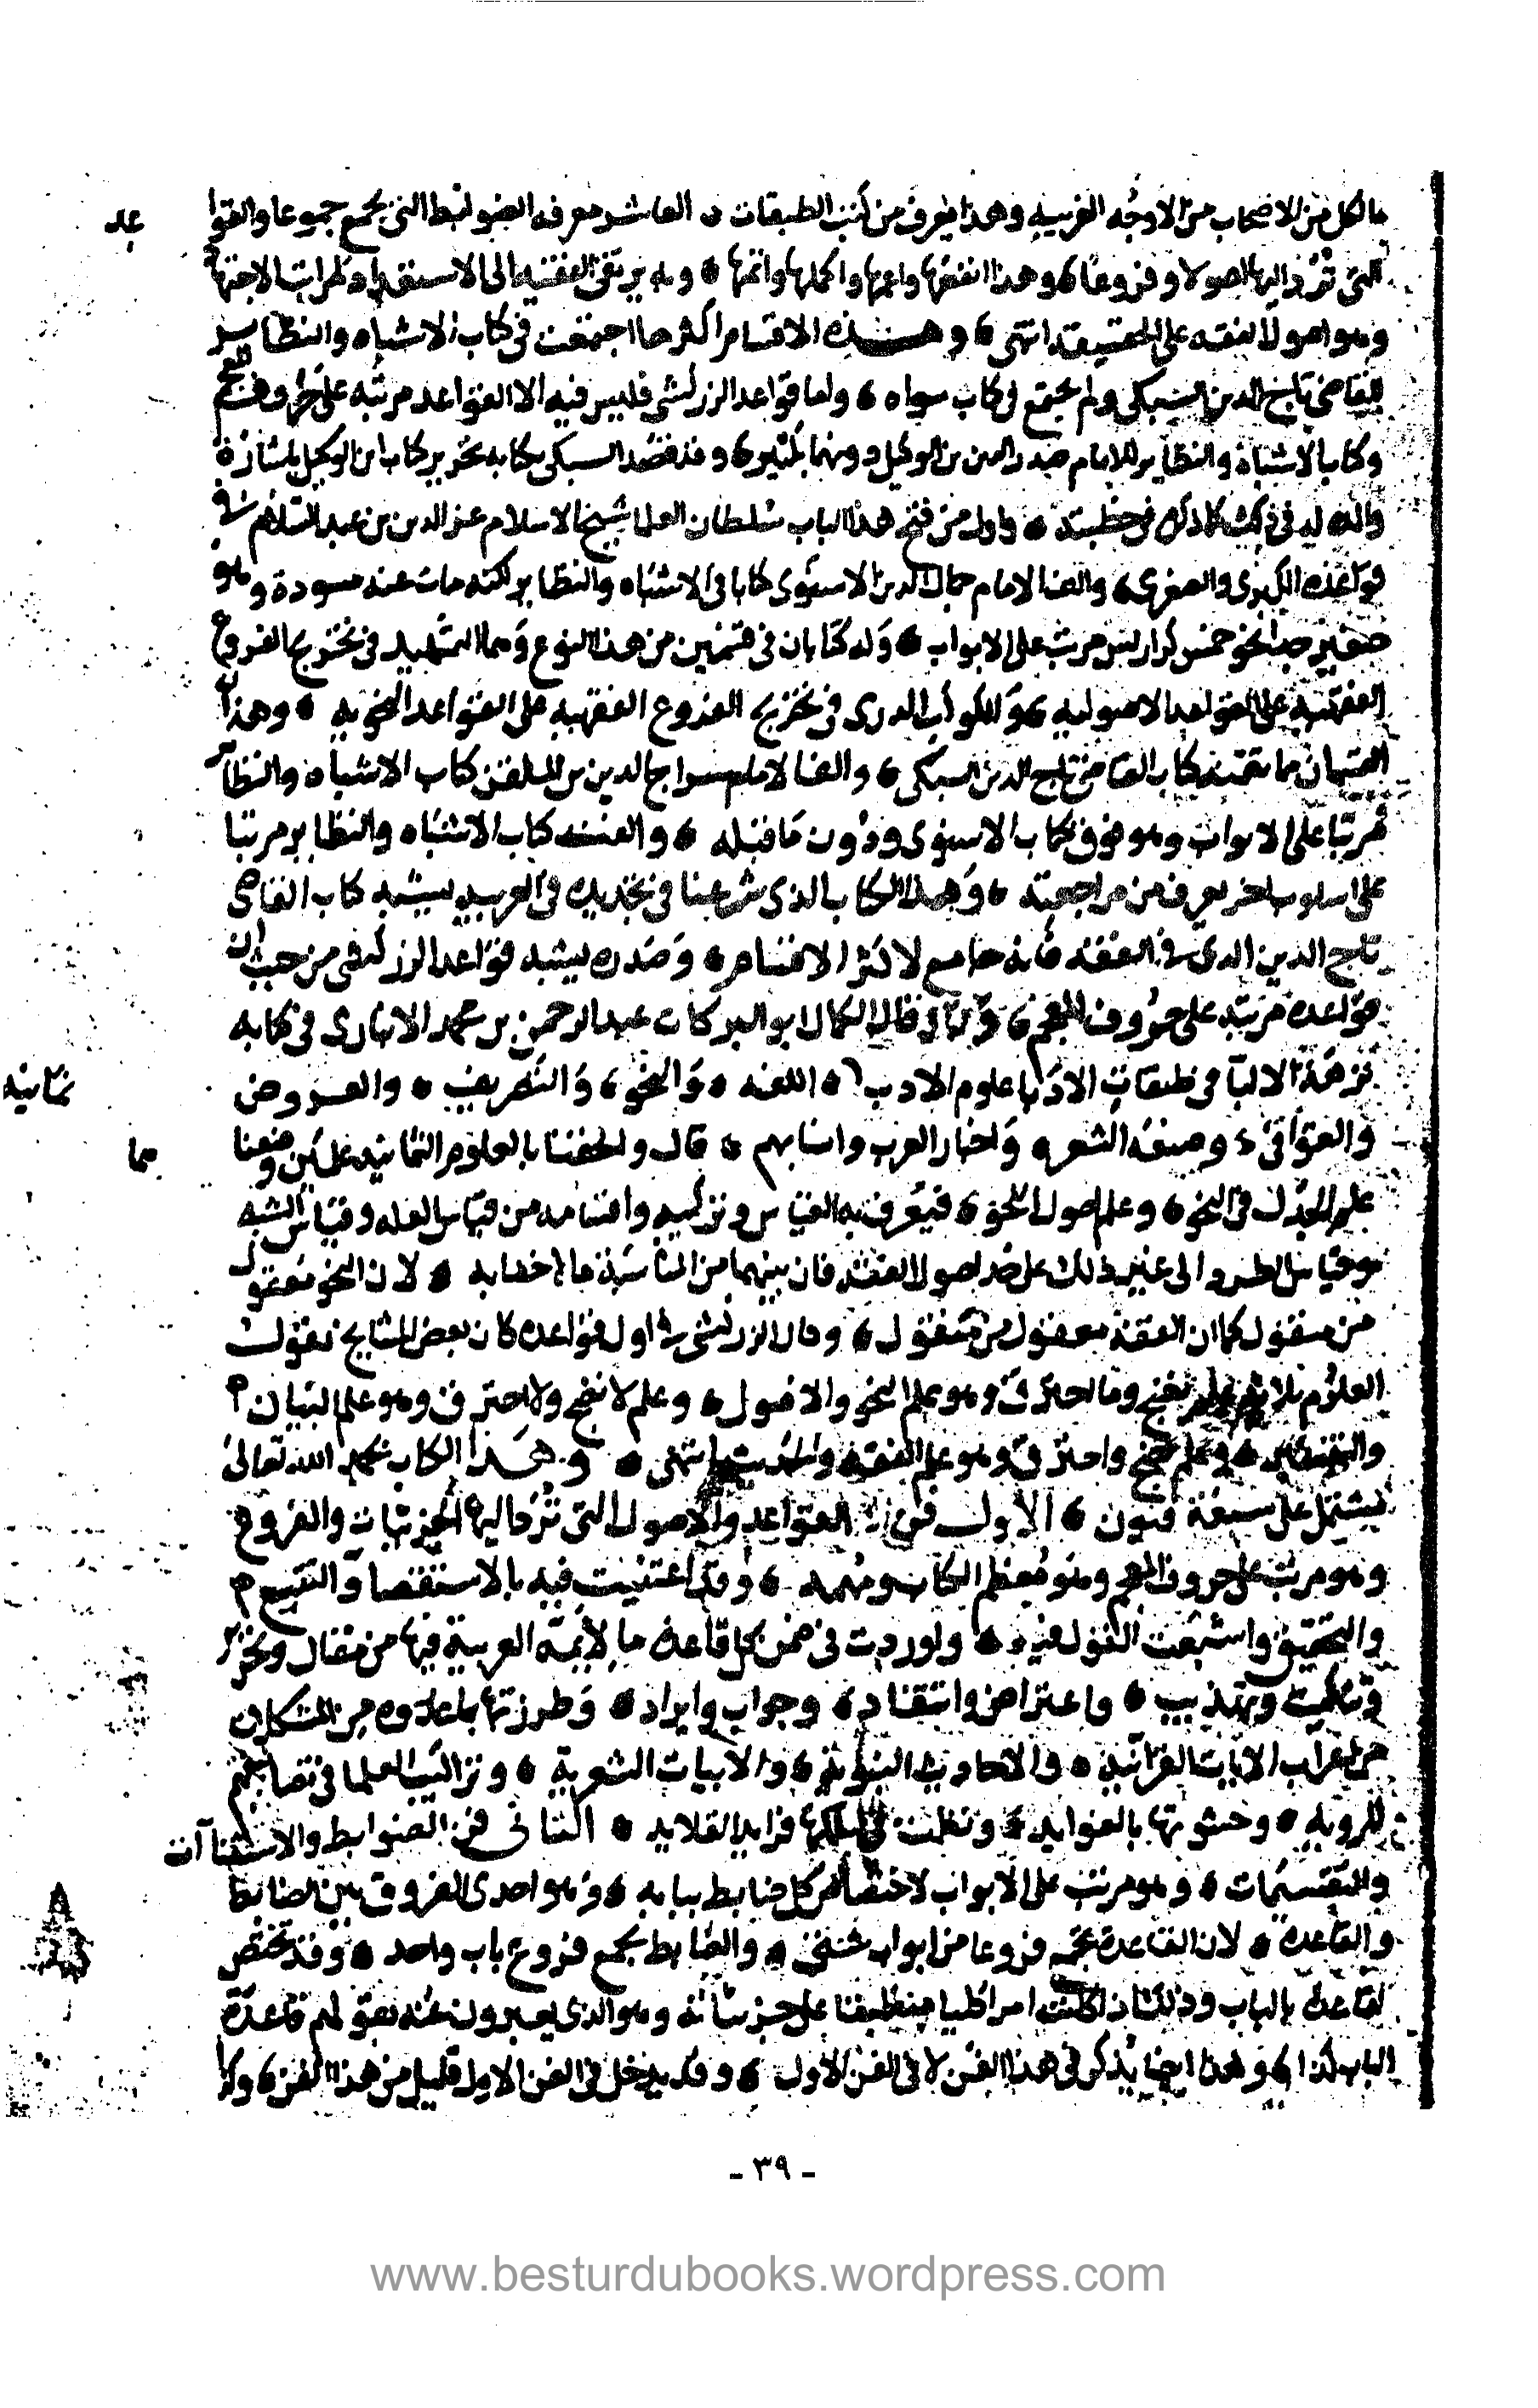 ما لكل من الاصحاب من الاوجه القريبه وهذا يعرف من كتب الطبقات العاشر معرفه الضوابط التي تجمع جموعا والقوا
عد
التي ترد اليها اصولا وفروعا وهذا انفعها واعمها واكملها واتمها وبه يرتقي الفقيه الى الاستعداد لمراتب الاجتها
وهو اصول الفقه على الحقيقه انتهى وهذه الاقسام اكثرها اجتمعت في كتاب الاشباه والنظاير
للقاضي تاج الدين السبكي ولم تجتمع في كتاب سواه واما قواعد الزركشي فليس فيه الا القواعد مرتبه على حروف المعجم
وكتاب الاشباه والنظاير للامام صدر الدين بن الوكيل دونهما بكثير وقد قصد السبكي بكتابه تحرير كتاب ابن الوكيل باشارة
والده له في ذلك كما ذكره في خطبته واول من فتح هذا الباب سلطان العلما شيخ الاسلام عز الدين بن عبد السلام في
قواعده الكبرى والصغرى والف الامام جمال الدين الاسنوي كتابا في الاشباه والنظاير لكنه مات عنه مسودة وهو
صغير جدا نحو خمس كراريس مرتب على الابواب وله كتابان في قسمين من هذا النوع وهما التمهيد في تخريج الفروع
الفقهيه على القواعد الاصوليه والكوكب الدري في تخريج الفروع الفقهيه على القواعد النحويه وهذان
القسمان مما تضمنه كتاب القاضي تاج الدين السبكي والف الامام سراج الدين بن الملقن كتاب الاشباه والنظائر
مرتبا على الابواب وهو فوق كتاب الاسنوي ودون ما قبله والفت كتاب الاشباه والنظاير مرتبا
على اسلوب اخر يعرف من مراجعته وهذا الكتاب الذي شرعنا في تجديده في العربيه يشبه كتاب القاضي
تاج الدين الذي في الفقه فانه جامع لاكثر الاقسام وصدره يشبه قواعد الزركشي من حيث ان
قواعده مرتبه على حروف المعجم وقد قال الكمال ابو البركات عبد الرحمن بن محمد الانباري في كتابه
نزهة الالبا في طبقات الادبا علوم الادب ثمانيه اللغه والنحو والتصريف والعروض
والقوافي وصنعة الشعر واخبار العرب وانسابهم قال والحقنا بالعلوم الثمانيه علمين وضعناهما
علم الجدل في النحو وعلم اصول النحو فيعرف به القياس وتركيبه واقسامه من قياس العله وقياس الشبه
وقياس الطرد الى غير ذلك على حد اصول الفقه فان بينهما من المناسبة ما لا خفا به لان النحو معقول
من منقول كما ان الفقه معقول من منقول وقال الزركشي في اول قواعده كان بعض المشايخ يقول
العلوم ثلاثه علم نضج وما احترق وهو علم النحو والاصول وعلم لا نضج ولا احترق وهو علم البيان
والتفسير وعلم نضج واحترق وهو علم الفقه والحديث انتهى وهذا الكتاب بحمد الله تعالى
يشتمل على سبعة فنون الاول فن القواعد والاصول التي ترد اليها الجزئيات والفروع
وهو مرتب على حروف المعجم وهو معظم الكتاب ومهمه وقد اعتنيت فيه بالاستقصا والتتبع
والتحقيق واشبعت القول فيه واوردت في ضمن كل قاعدة ما لائمة العربية فيها من مقال وتحرير
وتنكيت وتهذيب واعتراض وانتقاد وجواب وايراد وطرزتها بما عدوه من المشكلات
من اعراب الايات القرآنيه والاحاديث النبويه والابيات الشعرية وتراكيب العلما في تصانيفهم
المرويه وحشوتها بالفوايد ونظمت في سلكها فرايد القلايد الثاني فن الضوابط والاستثناآت
والتقسيمات وهو مرتب على الابواب لاختصاص كل ضابط ببابه وهو احدى الفروق بين الضابط
والقاعدة لان القاعدة تجمع فروعا من ابواب شتى والضابط يجمع فروع باب واحد وقد تختص
القاعدة بالباب وذلك اذا كانت امرا كليا منطبقا على جزئياته وهو الذي يعبرون عنه بقولهم قاعدة
الباب كذا وهذا ايضا يذكر في هذا الفن لا في الفن الاول وقد يدخل في الفن الاول قليل من هذا الفن وكل
- ٣٩ -
www.besturdubooks.wordpress.com